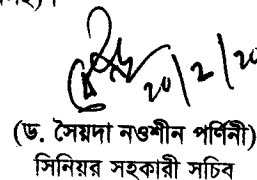 ২০/২/২০
(ড. সৈয়দা নওশীন পর্ণিনী)
সিনিয়র সহকারী সচিব